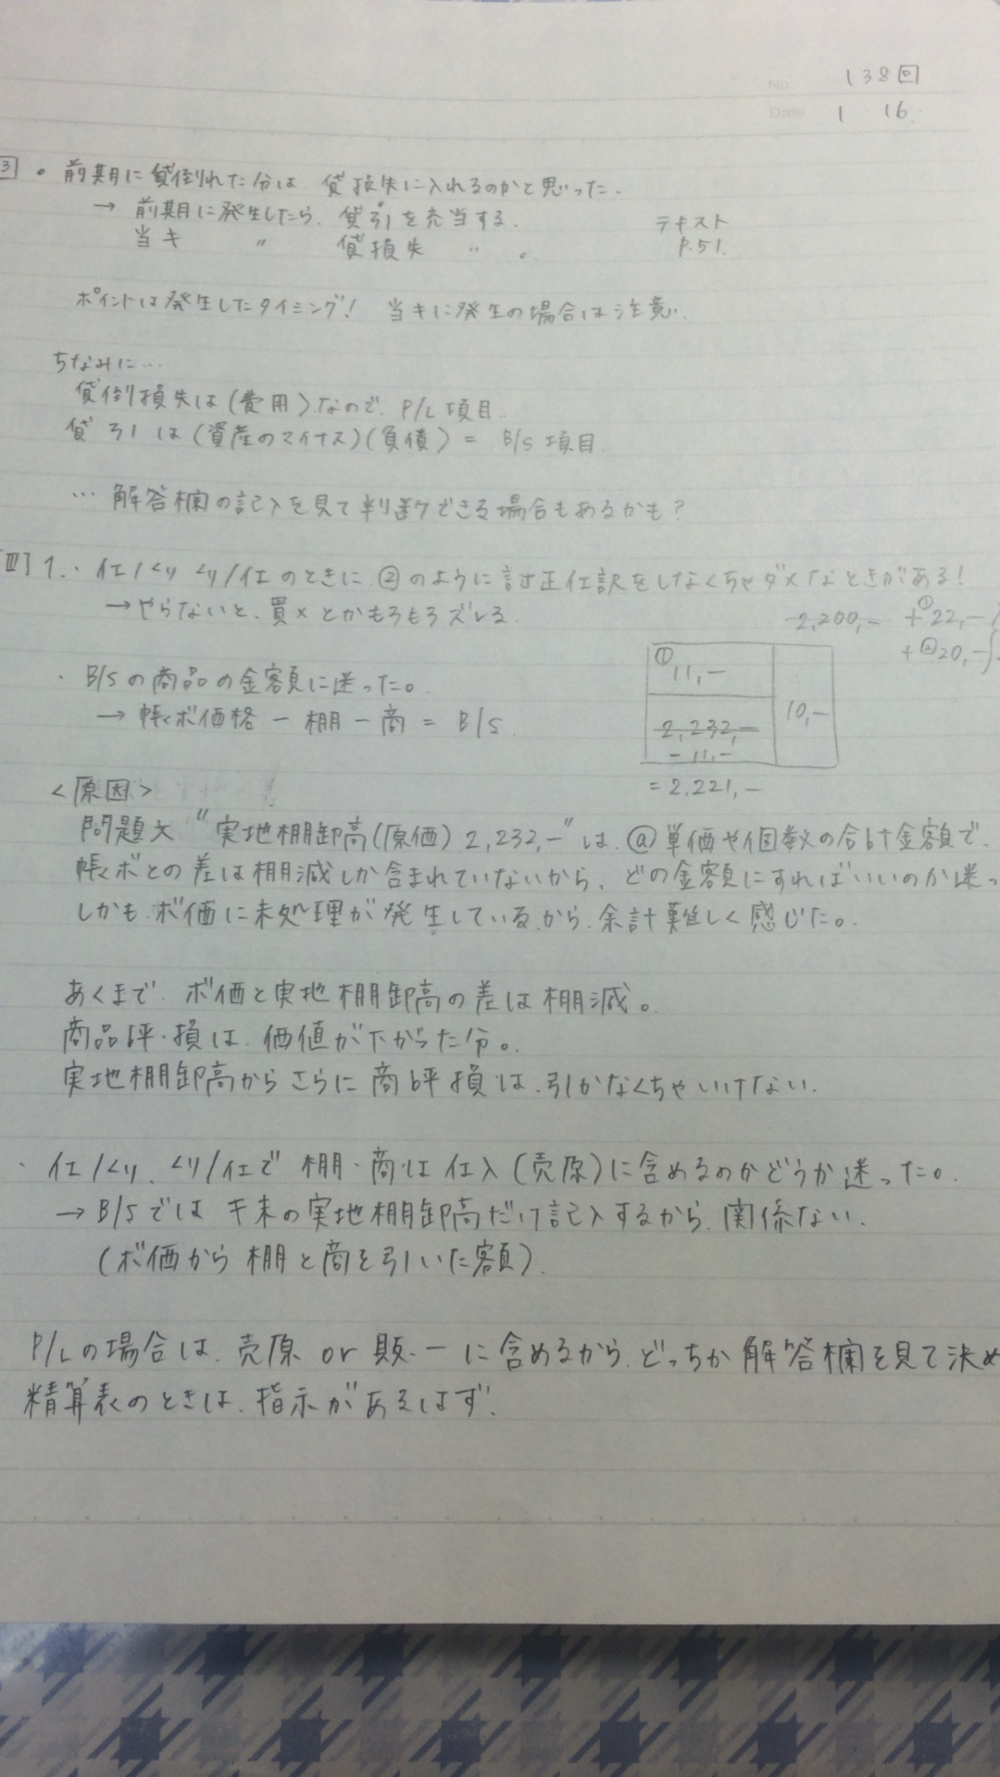 No. 138回
Date 1 16.
3 ・前期に貸倒れた分は、貸損失に入れるのかと思った.
→ 前期に発生したら、貸引を充当する. テキスト
当キ 〃 貸損失 〃 。 P.51.
ポイントは発生したタイミング! 当キに発生の場合は注意.
ちなみに…
貸倒損失は(費用)なので、P/L項目.
貸引は(資産のマイナス)(負債) = B/S項目.
… 解答欄の記入を見て判断できる場合もあるかも?
[Ⅲ] 1.・仕/くり くり/仕のときに、②のように訂正仕訳をしなくちゃダメなときがある!
→やらないと、買×とかもろもろズレる.
2,200,- + ① 22,-
+ ④ 20,-
・B/Sの商品の金額に迷った。
→ 帳ボ価格 - 棚 - 商 = B/S.
① 11,-
2,232,-
- 11,-
10,-
= 2,221,-
<原因>
問題文 "実地棚卸高(原価) 2,232,-" は、@単価や個数の合計金額で、
帳ボとの差は棚減しか含まれていないから、どの金額にすればいいのか迷っ
しかも、ボ価に未処理が発生しているから、余計難しく感じた。
あくまで、ボ価と実地棚卸高の差は棚減。
商品評・損は、価値が下がった分。
実地棚卸高からさらに商評損は、引かなくちゃいけない.
・仕/くり、くり/仕で棚・商は仕入(売原)に含めるのかどうか迷った。
→ B/Sではキ末の実地棚卸高だけ記入するから、関係ない.
(ボ価から棚と商を引いた額).
P/Lの場合は、売原 or 販・一に含めるから、どっちか解答欄を見て決め
精算表のときは、指示があるはず.